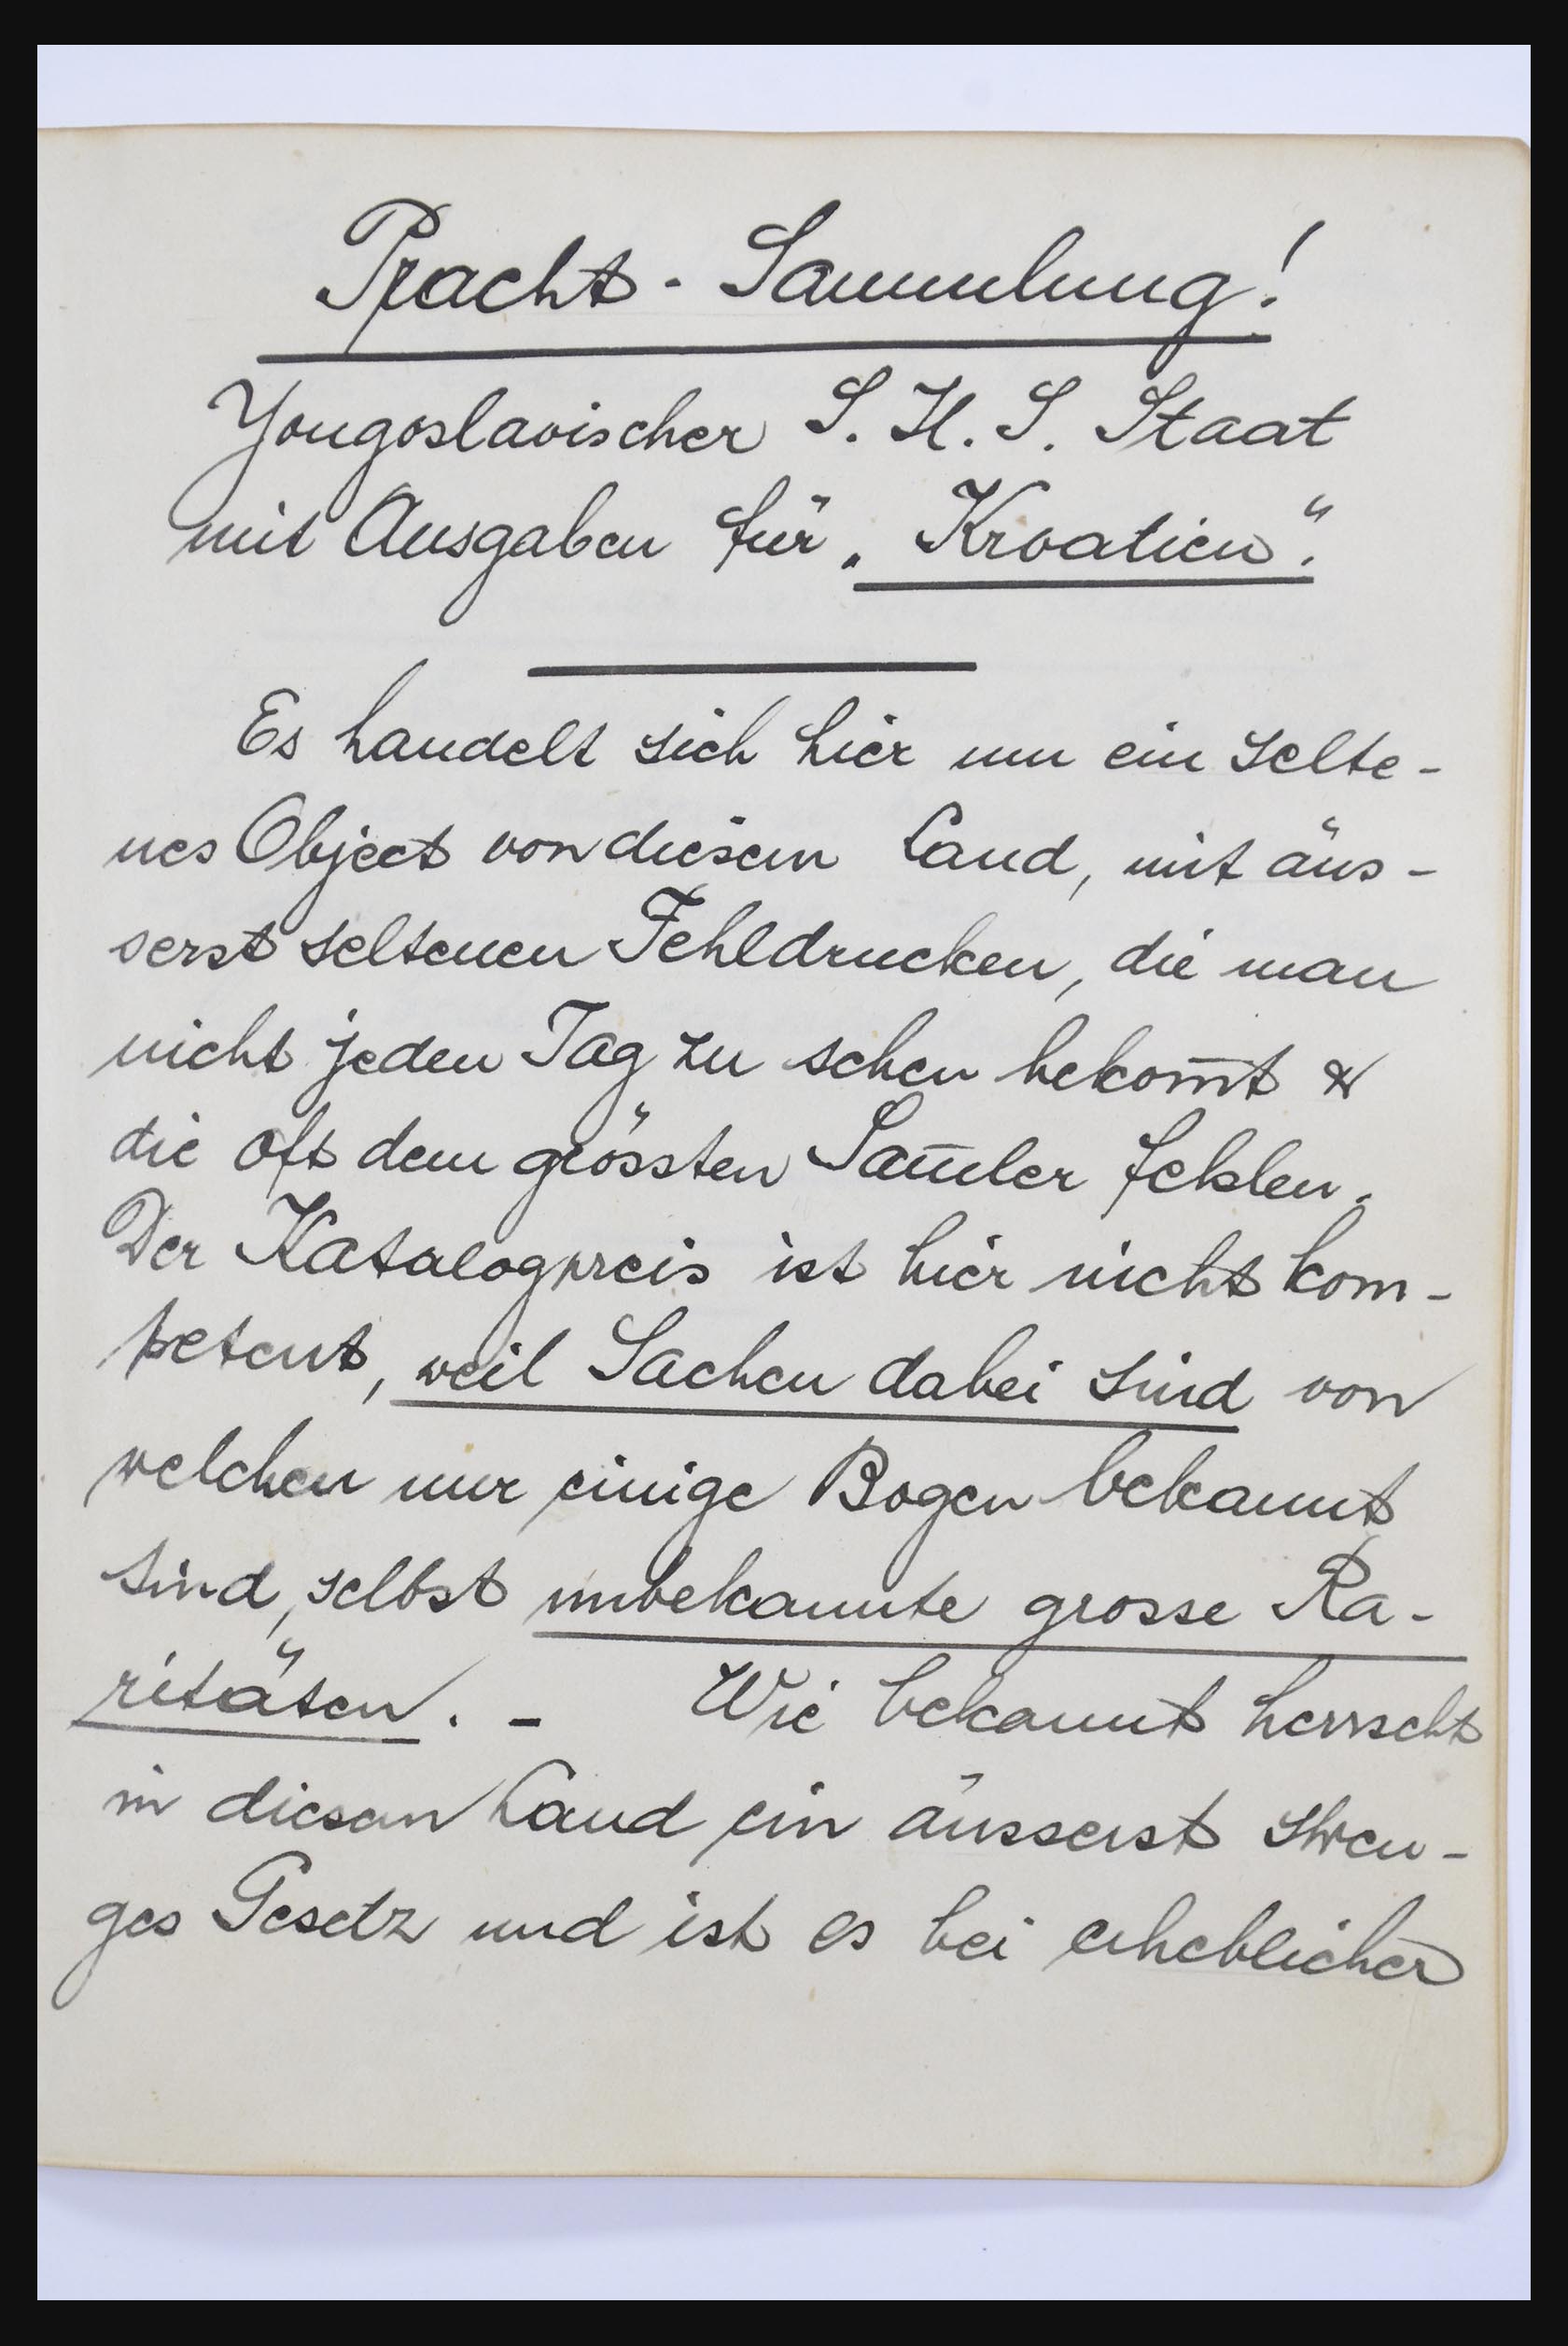 Pracht - Sammlung!
Yougoslavischer S. H. S. Staat
mit Ausgaben für „Kroatien“.
Es handelt sich hier um ein selte-
nes Object von diesem Land, mit äus-
serst seltenen Fehldrucken, die man
nicht jeden Tag zu sehen bekom̄t &
die oft dem grössten Sam̄ler fehlen.
Der Katalogpreis ist hier nicht kom-
petent, weil Sachen dabei sind von
welchen nur einige Bogen bekannt
sind, selbst unbekannte grosse Ra-
ritäten. - Wie bekannt herrscht
in diesem Land ein äusserst stren-
ges Gesetz und ist es bei erheblicher